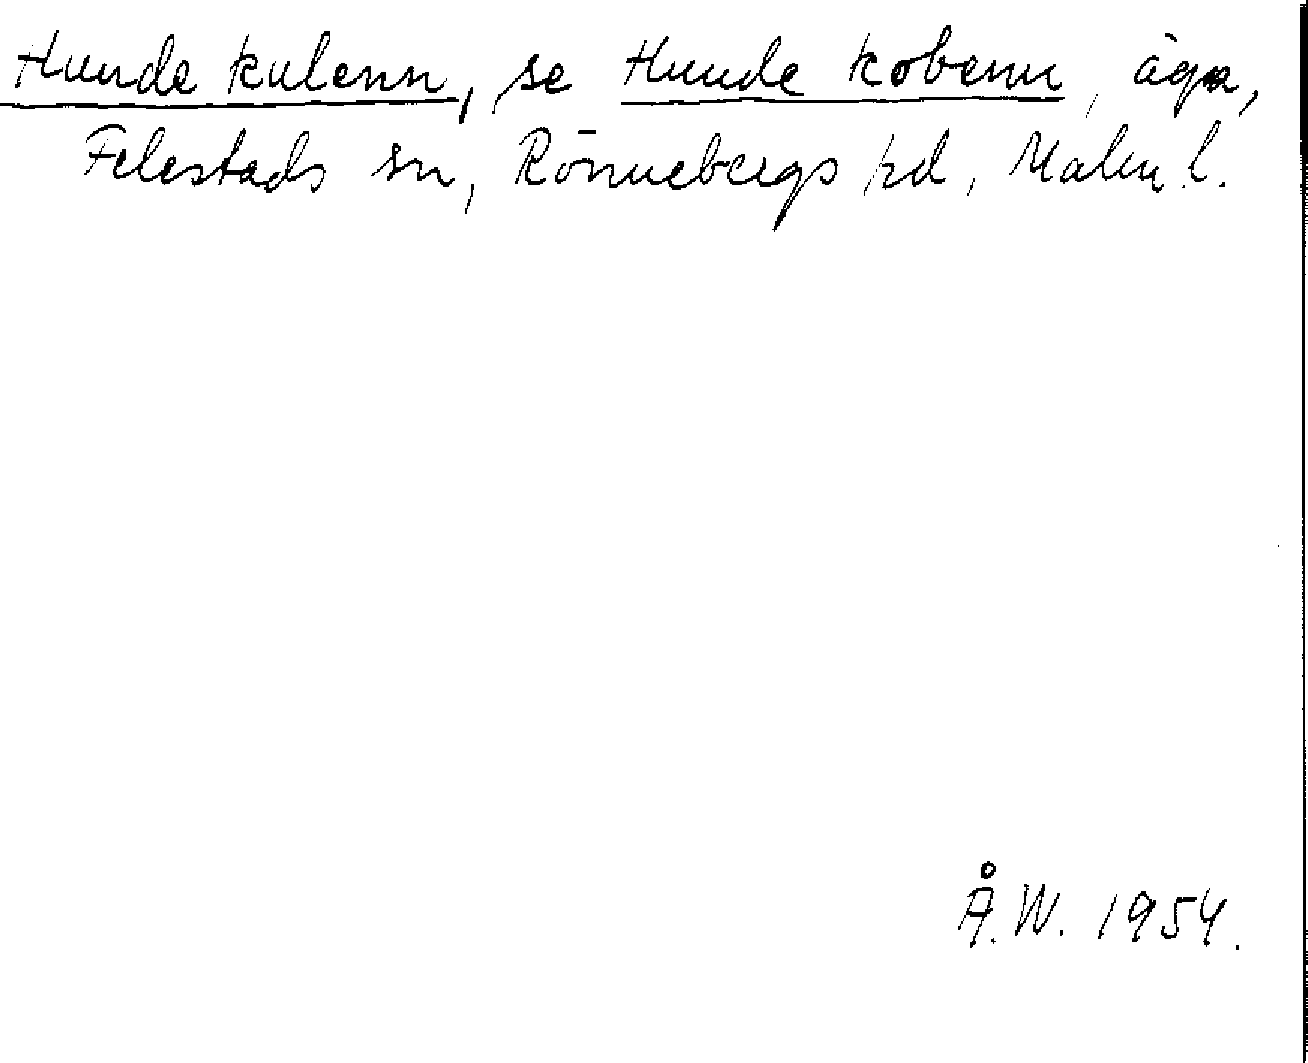 Hunde kulenn, se Hunde kobenn, äga,
Felestads sn, Rönnebergs hd, Malm. l.
Å.W. 1954.